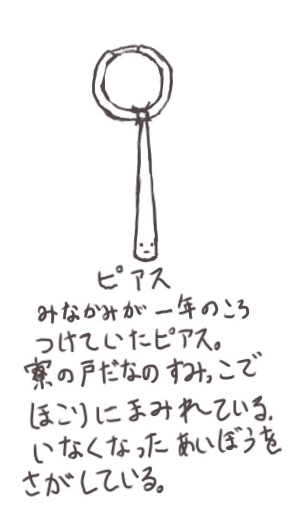 ピアス
みなかみが一年のころ
つけていたピアス。
寮の戸だなのすみっこで
ほこりにまみれている.
いなくなったあいぼうを
さがしている。